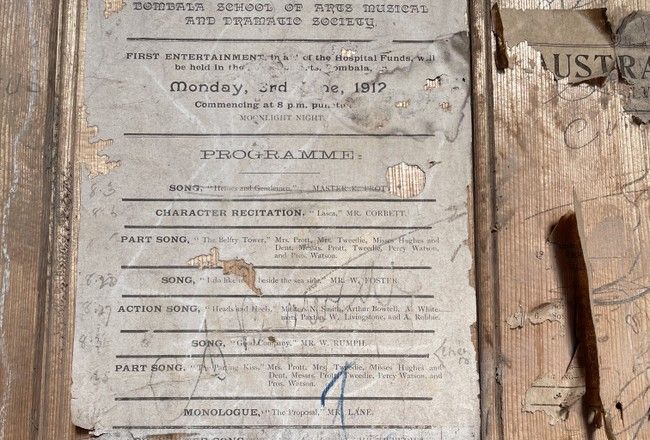 BOMBALA SCHOOL OF ARTS MUSICAL
AND DRAMATIC SOCIETY.
FIRST ENTERTAINMENT, in of the Hospital Funds, will
be held in the Bombala,
Monday, 3rd June, 1912
Commencing at 8 p.m.
MOONLIGHT NIGHT.
PROGRAMME:
SONG, "Heroes and Gentlemen," MASTER E. PROTT
CHARACTER RECITATION, "Lasca," MR. CORBETT.
PART SONG, "The Belfry Tower," Mrs. Prott, Mrs. Tweedie, Misses Hughes and
Dent, Messrs. Prott, Tweedie, Percy Watson,
and Pros. Watson.
SONG, "I do like beside the sea side," MR. W. FOSTER
ACTION SONG, "Heads and Heels," N. Smith, Arthur Bowtell, A. White-
Paxton, W. Livingstone, and A. Robbie.
SONG, "Good Company," MR. W. RUMPH.
PART SONG, "The Parting Kiss," Mrs. Prott, Mrs. Tweedie, Misses Hughes and
Dent, Messrs. Prott, Tweedie, Percy Watson, and
Pros. Watson.
MONOLOGUE, "The Proposal," MR. LANE.
SONG,
8.20
8.27